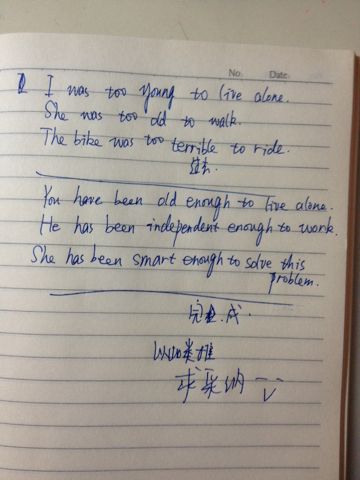 No.
Date.
I was too young to live alone.
She was too old to walk.
The bike was too terrible to ride.
You have been old enough to live alone.
He has been independent enough to work.
She has been smart enough to solve this
problem.
完成.
以此类推
求采纳